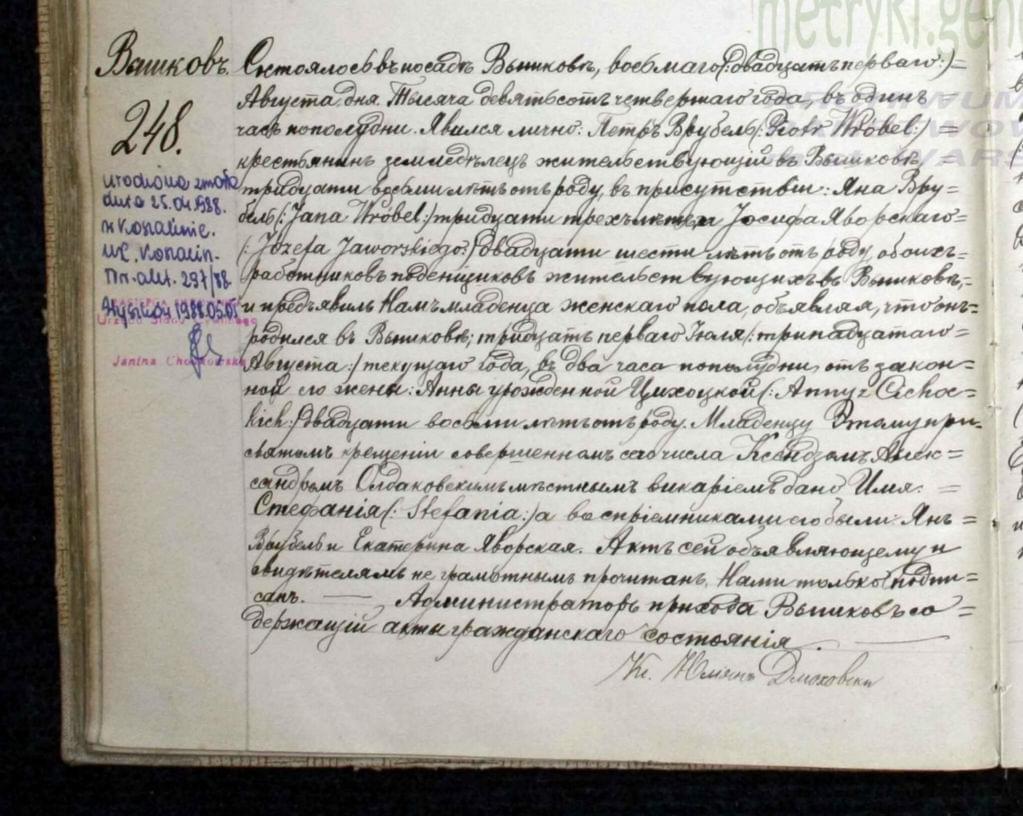 metryki.gene
Вышковъ.
248.
urodzona zmarła
dnia 25.04.1988.
w Koszalinie.
USC. Koszalin.
Nr. akt. 297/88.
Wyszków 1988.05.05
Janina
Состоялось въ посадѣ Вышковѣ, восьмаго (:двадцать перваго:)=
Августа дня Тысяча девятьсотъ четвертаго года, въ одинъ
часъ пополудни. Явился лично: Петръ Врубель (:Piotr Wróbel:)=
крестьянинъ земледѣлецъ жительствующій въ Вышковѣ,
тридцати восьми лѣтъ отъ роду, въ присутствіи: Яна Вру-
беля (:Jana Wróbel:) тридцати трехъ лѣтъ и Іосифа Яворскаго=
(:Józefa Jaworskiego:) двадцати шести лѣтъ отъ роду, обоихъ
работниковъ поденщиковъ жительствующихъ въ Вышковѣ,-
и предъявилъ Намъ младенца женскаго пола, объявляя, что онъ-
родился въ Вышковѣ, тридцать перваго Іюля (:тринадцатаго=
Августа:) текущаго года, въ два часа пополудни, отъ закон=
ной его жены: Анны урожденной Цихоцкой (:Anny z Cichoc-
kich:) двадцати восьми лѣтъ отъ роду. Младенцу Этому при-
святомъ крещеніи совершенномъ сего числа Ксендзомъ Алек=
сандромъ Олдаковскимъ мѣстнымъ викаріемъ дано Имя: =
Стефанія (:Stefania:) а воспріемниками его были: Янъ =
Врубель и Екатерина Яворская. Актъ сей объявляющему и
свидѣтелямъ не грамотнымъ прочитанъ, Нами только подпи=
санъ. — Администраторъ прихода Вышковъ со=
держащій акты гражданскаго состоянія.
Кс. Юліанъ Дмоховски